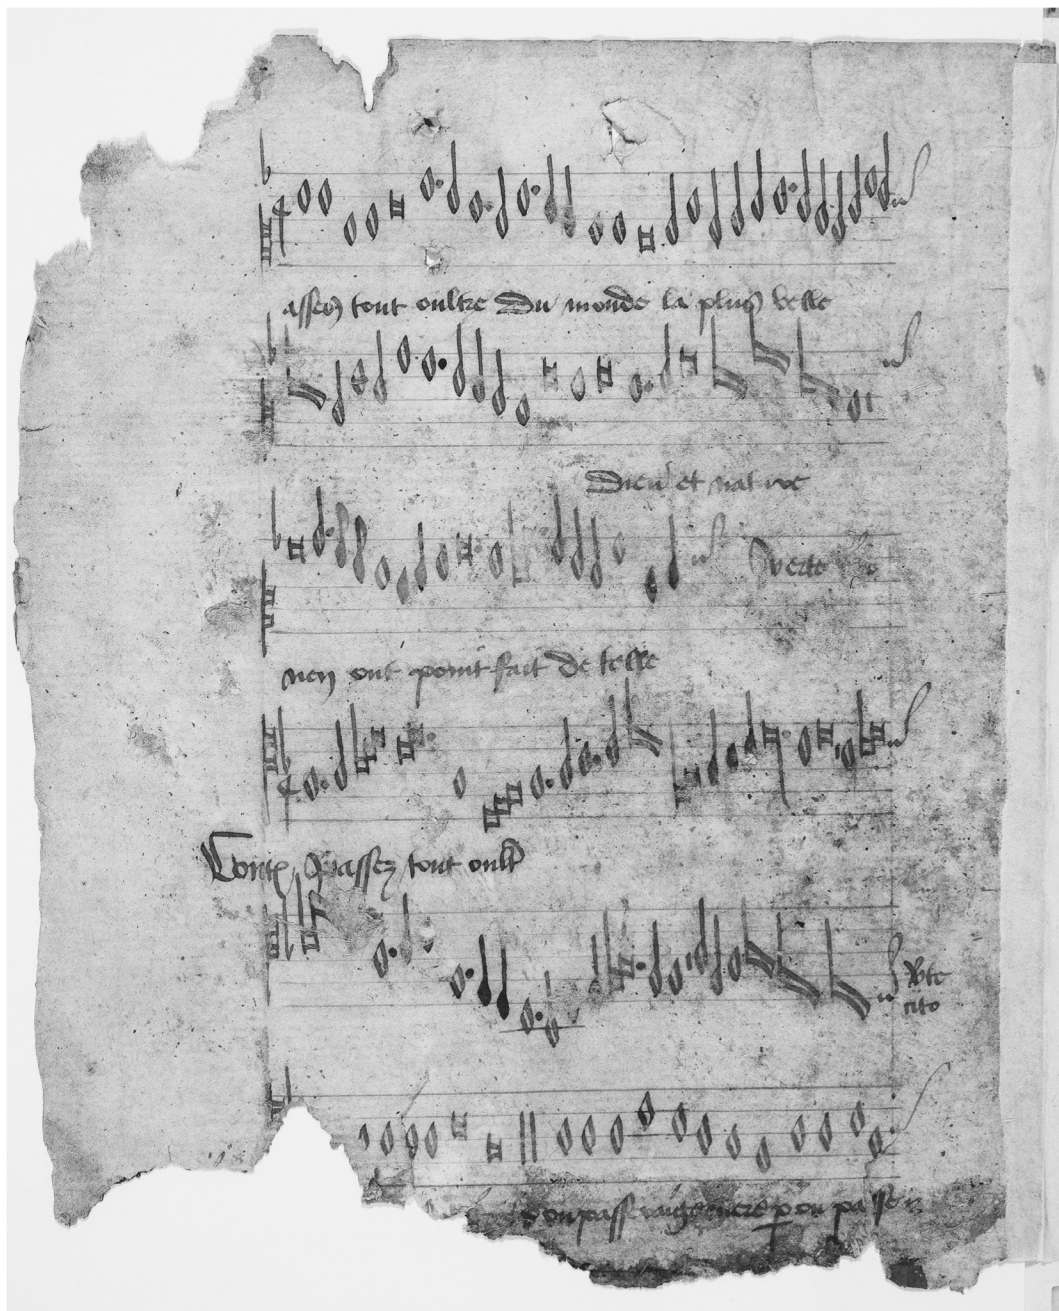 assez tout oultre Du monde la plus belle
Dieu et nature
Verte
nen ont point fait de telle
Contra Passez tout oultre
Vte
cito
on passe